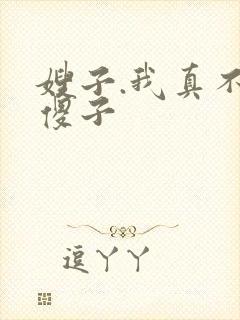 嫂子.我真不
傻子
逗丫丫